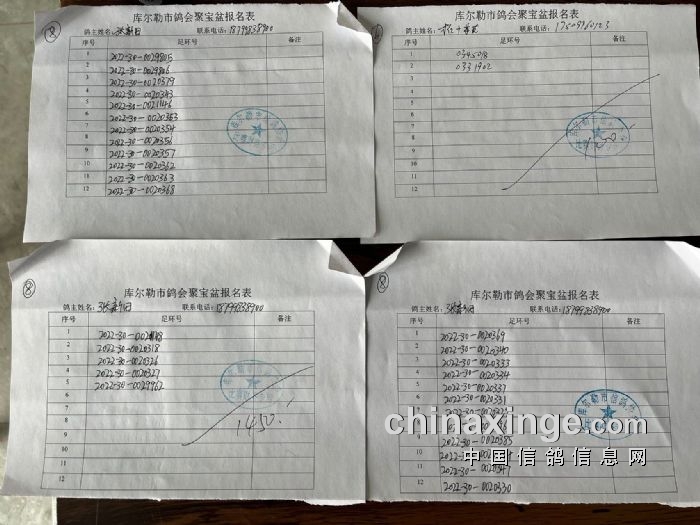 ⑧
库尔勒市鸽会聚宝盆报名表
鸽主姓名: 联系电话: 18799838900
序号 足环号 备注
1 2022-30-0029805
2 2022-30-0029806
3 2022-30-0020379
4 2022-30-0020343
5 2022-30-0021146
6 2022-30-0020363
7 2022-30-0020354
8 2022-30-0020356
9 2022-30-0020357
10 2022-30-0020362
11 2022-30-0020363
12 2022-30-0020368
库尔勒市鸽会聚宝盆报名表
鸽主姓名: 联系电话:
序号 足环号 备注
1 0345018
2 0331902
3
4
5
6
7
8
9
10
11
12
⑧
库尔勒市鸽会聚宝盆报名表
鸽主姓名: 联系电话: 18799838900
序号 足环号 备注
1
2 2022-30-0020318
3 2022-30-0020326
4 2022-30-0020327
5 2022-30-0029962
6
7
8
9
10
11
12
1450.
⑧
库尔勒市鸽会聚宝盆报名表
鸽主姓名: 联系电话: 18799838900
序号 足环号 备注
1 2022-30-0020369
2 2022-30-0020340
3 2022-30-0020333
4 2022-30-0020334
5 2022-30-0020337
6 2022-30-0020331
7
8
9 0020385
10
11
12 2022-30-0020330
库尔勒市信鸽
chinaxinge.com
中国信鸽信息网